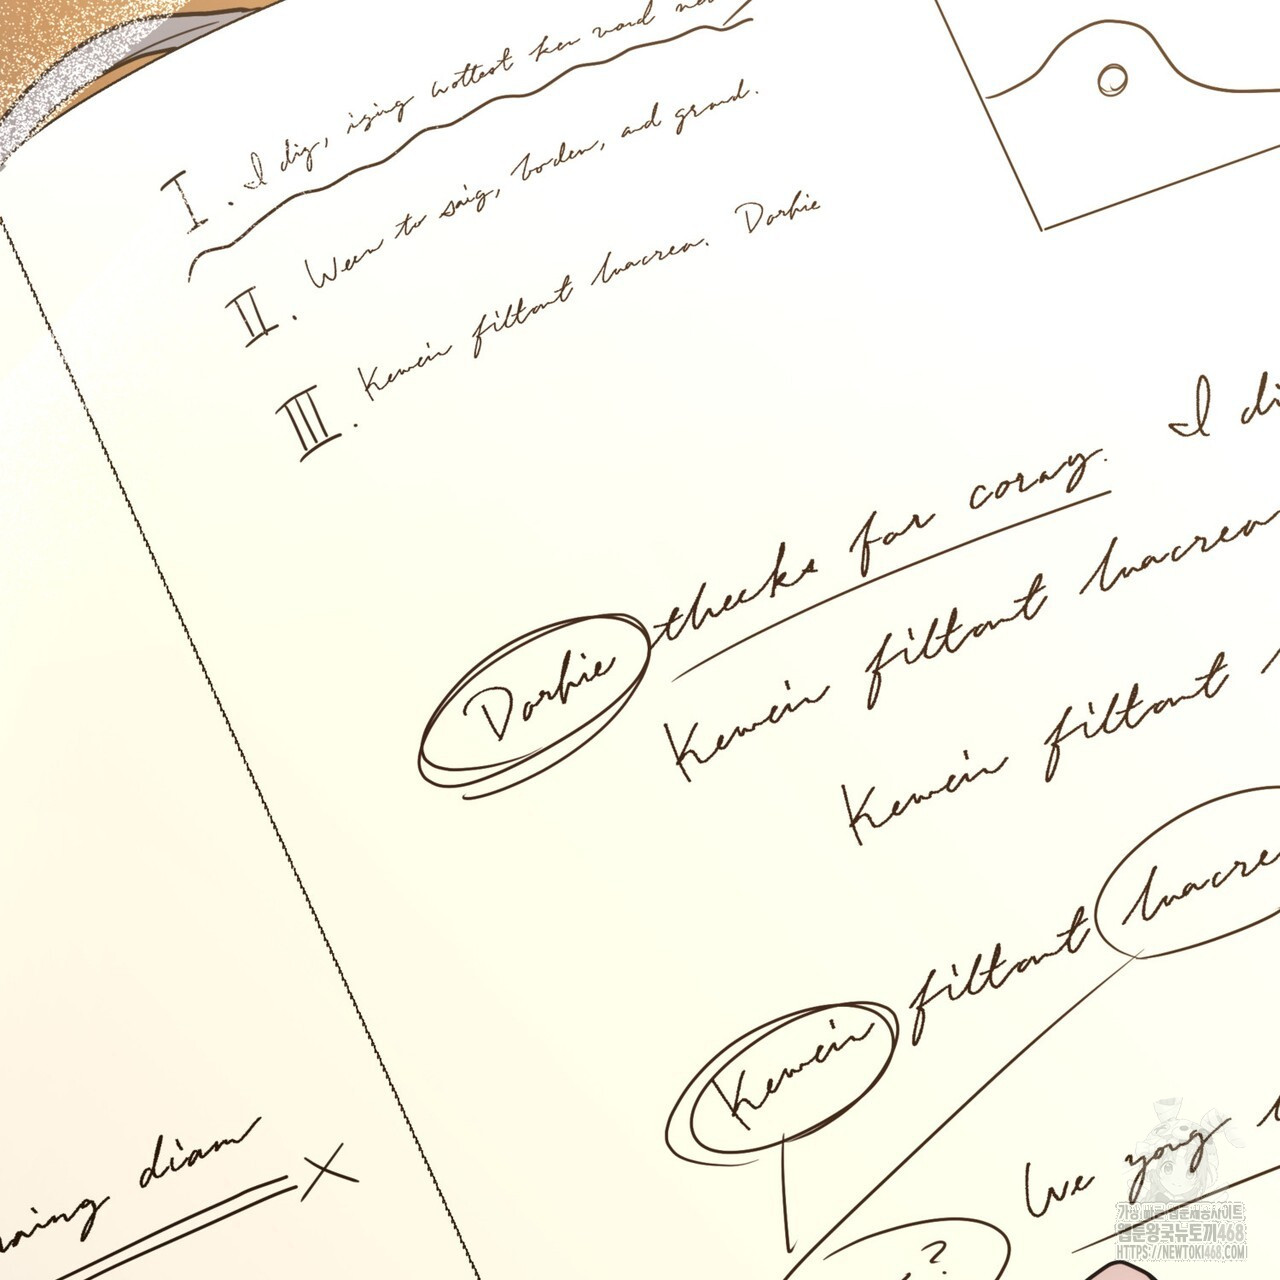 I. I dig, izing wottest ken
II. Ween to saig, borden, and grand.
III. Kewein filtant luacrea. Darhie
Darhie theeks far coray. I di
Kewein filtant luacrea
Kewein filtant
Kewein filtant luacre
ning diam X
We yong
?
가장 빠른 웹툰제공사이트
웹툰왕국뉴토끼468
HTTPS://NEWTOKI468.COM